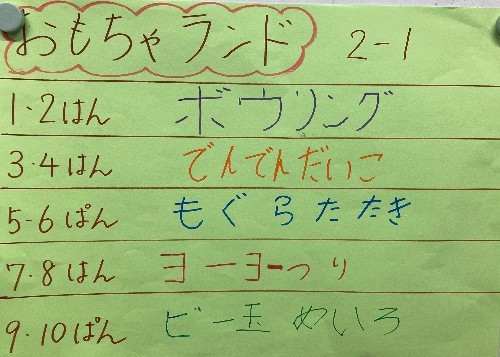 おもちゃランド 2-1
1・2はん ボウリング
3・4はん でんでんだいこ
5-6ぱん もぐらたたき
7・8はん ヨーヨーつり
9・10ぱん ビー玉めいろ